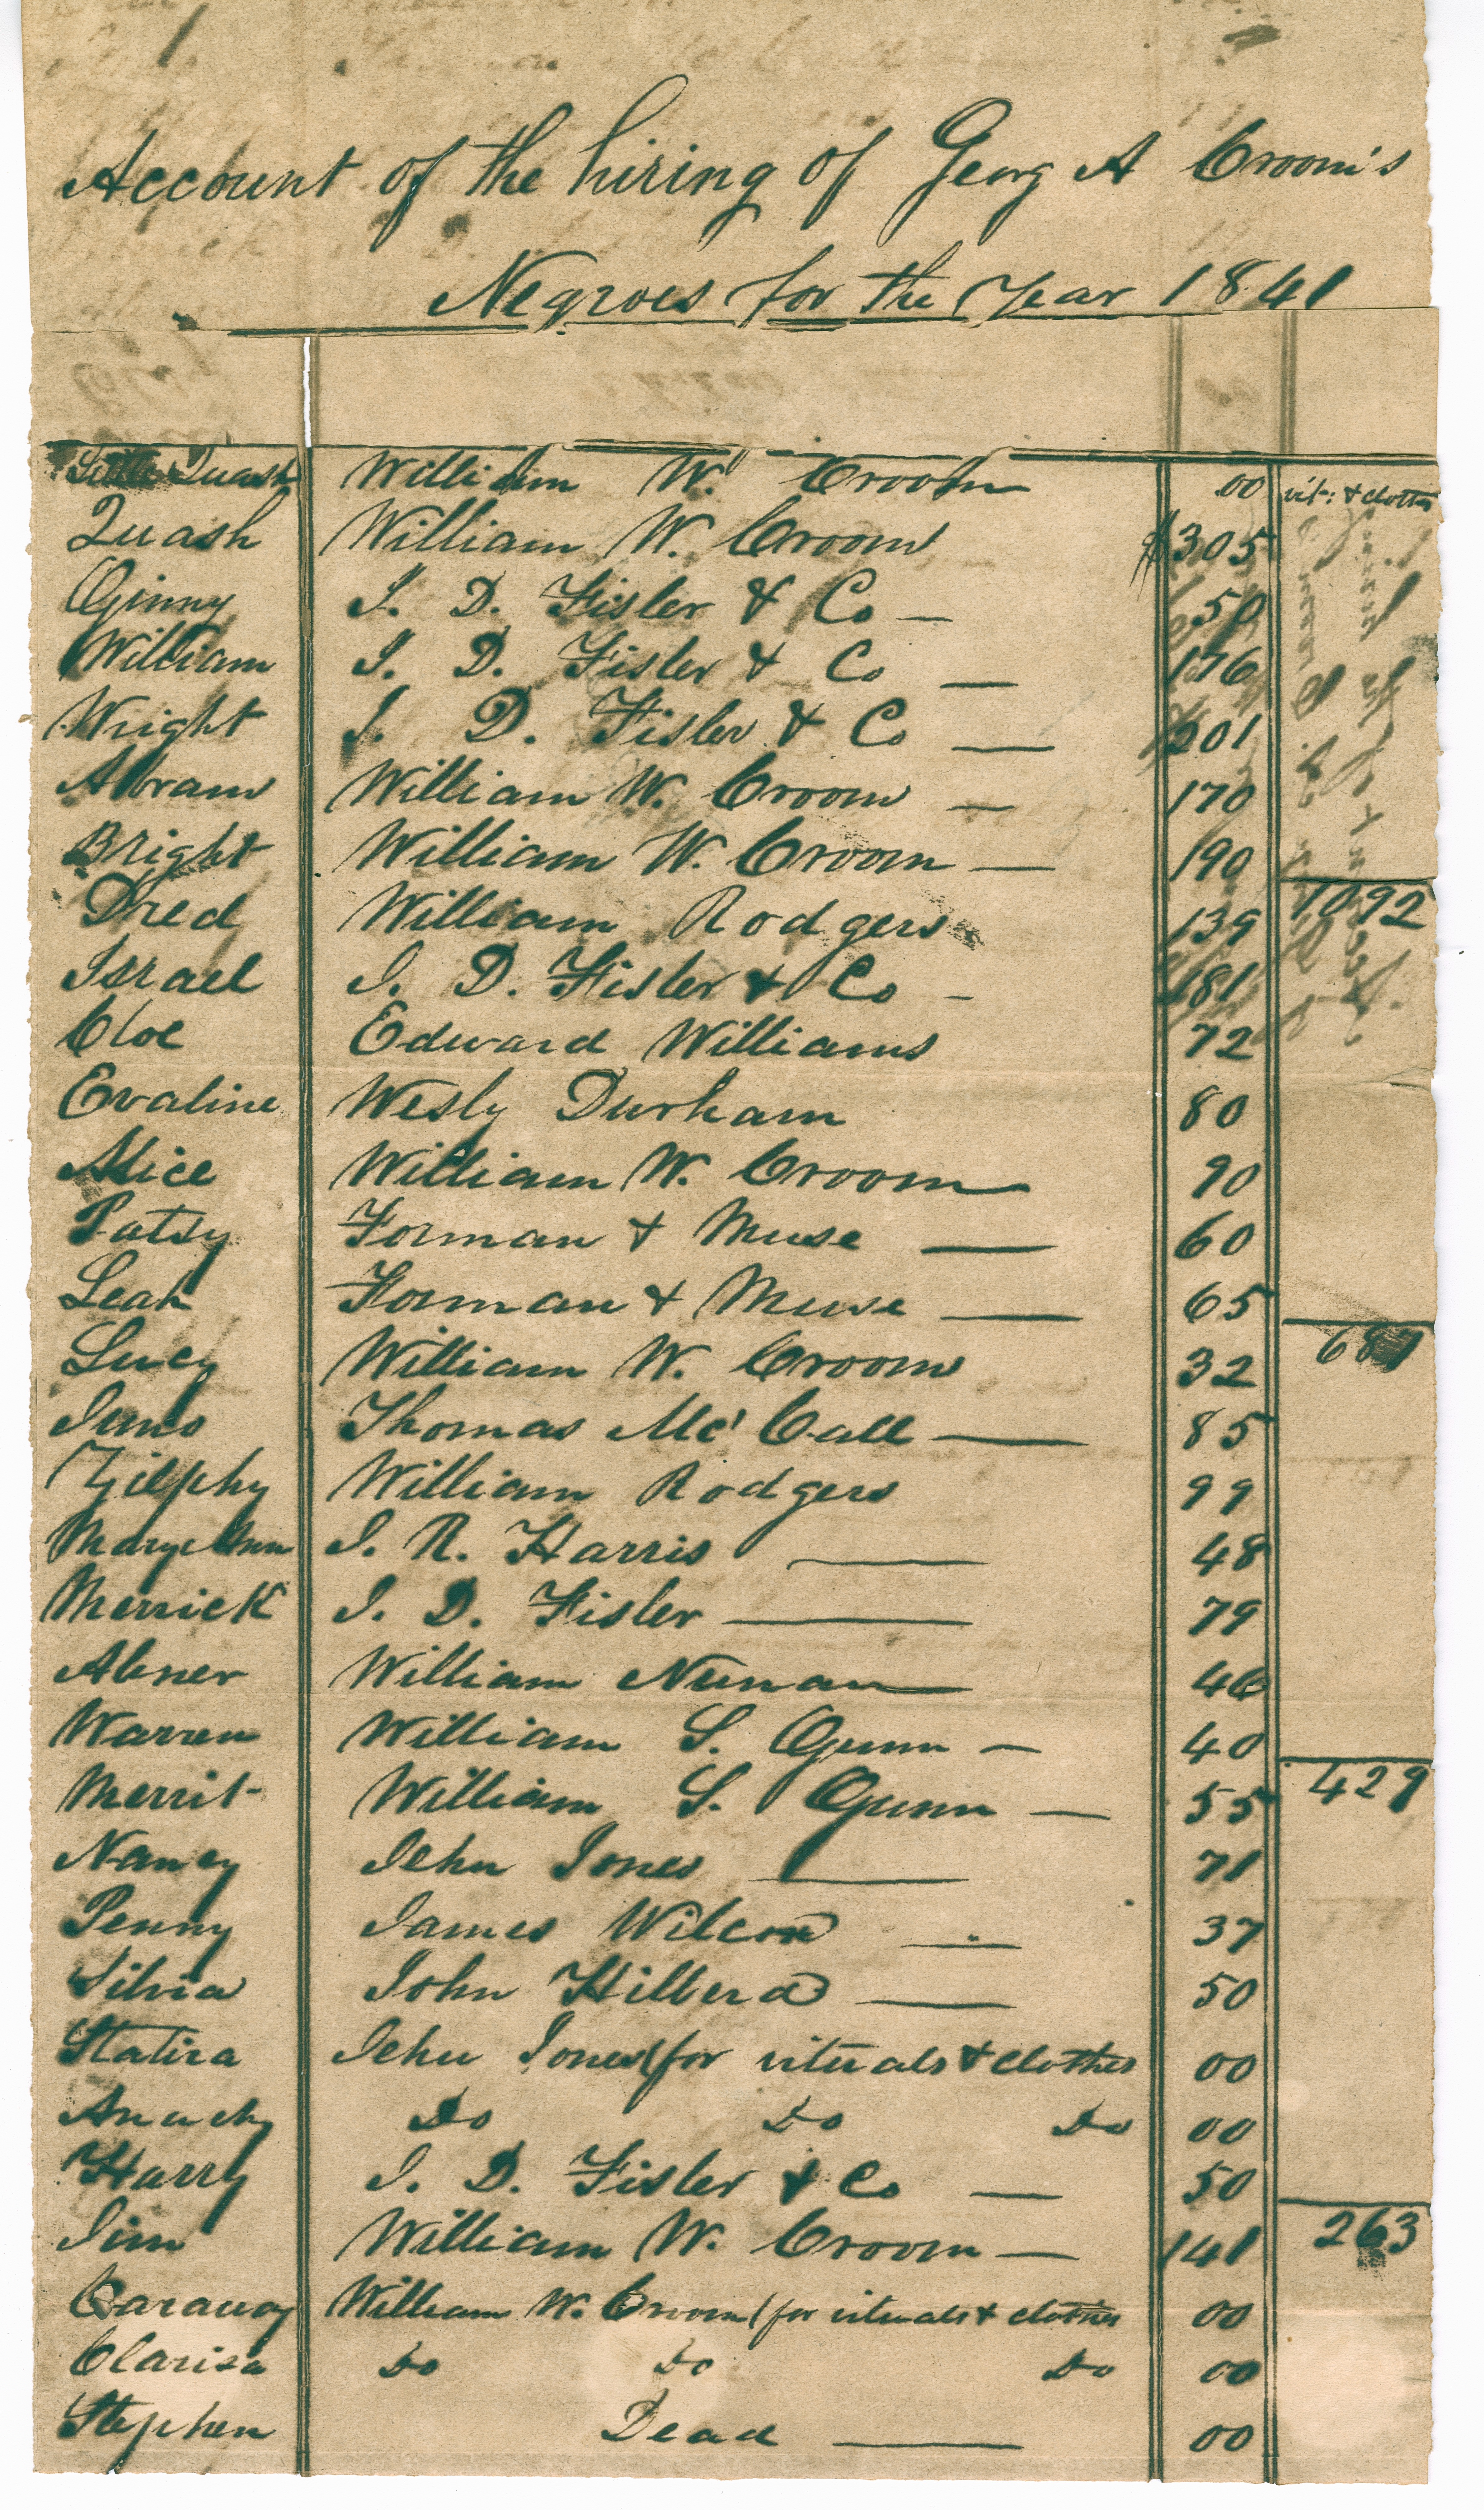 Account of the hiring of Georg A Croom's
Negroes for the Year 1841
Little Quash William W. Croom 00 vit: & clothes
Quash William W. Croom $305
Ginny I. D. Fisler & Co — 50
William I. D. Fisler & Co — 176
Wright I. D. Fisler & Co — 201
Abram William W. Croom — 170
Bright William W. Croom — 190
1092
Dred William Rodgers 139
Israel I. D. Fisler & Co - 181
Cloe Edward Williams 72
Evaline Wesly Durham 80
Alice William W. Croom 90
Patsy Forman & Muse — 60
Leah Forman & Muse — 65
687
Lucy William W. Croom 32
Juno Thomas Mc' Call — 85
Zilphy William Rodgers 99
Mary Ann I. R. Harris — 48
Merrick I. D. Fisler — 79
Abner William Nunan 46
Warren William S. Gunn — 40
429
Merrit William S. Gunn — 55
Nancy Jehu Jones — 71
Penny James Wilcox — 37
Silvia John Hilbird — 50
Statira Jehu Jones (for vituals & clothes 00
Anachy Do Do Do 00
Harry I. D. Fisler & Co — 50
263
Jim William W. Croom — 141
Caraway William W. Croom (for vituals & clothes 00
Clarisa Do Do Do 00
Stephen Dead — 00